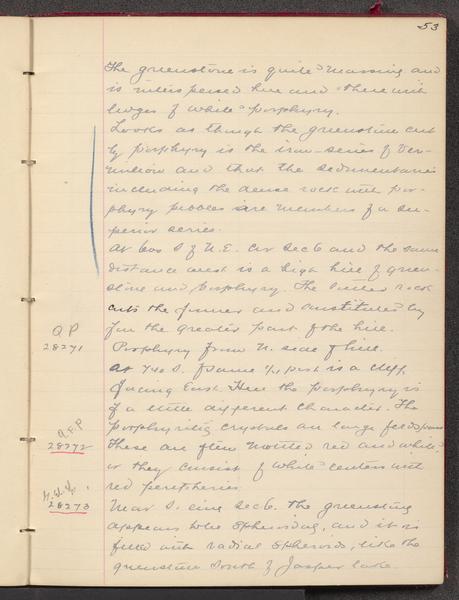 53
The greenstone is quite massive and
is interspersed here and there with
ledges of white porphyry.
Looks as though the greenstone cut
by porphyry is the iron-series of Ver-
million and that the sedimentaries
including the dense rock with por-
phyry pebbles are members of a su-
perior series.
At 600 S of N.E. Cor Sec 6 and the same
distance west is a high hill of green-
stone and porphyry. The latter rock
cuts the former and constitutes by
far the greater part of the hill.
Q P
28271
Porphyry from N. side of hill.
At 740 S. of same 1/4 post is a cliff
facing East. Here the porphyry is
of a little different character. The
porphyritic crystals are large feldspars
Q.F.P
28272
These are often mottled red and white
or they consist of white centers with
red peripheries.
28273
Near S. line Sec 6. the greenstone
appears to be spheroidal, and it is
filled with radial spheroids, like the
greenstone South of Jasper Lake.